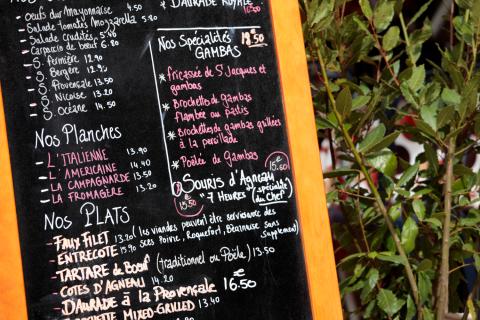 Oeufs dur Mayonnaise 4.50
Salade Tomates Mozzarella
Salade crudités 5.40
Carpaccio de bœuf 6.80
S. Fermière 12.90
S. Bergère 12.90
S. Provençale 13.50
S. Niçoise 13.20
S. océane 14.50
Nos Planches
- L'ITALIENNE 13.90
- L'AMERICAINE 14.40
- LA CAMPAGNARDE 13.50
- LA FROMAGÈRE 13.20
DAURADE ROYALE
Nos Spécialités 18.50
GAMBAS
* fricassée de St Jacques et
gambas
* Brochettes de gambas
flambée au pastis
* Brochettes de gambas grillées
à la persillade
* Poêlée de gambas
15.60
Souris d'Agneau
18.50 "7 Heures" (spécialité
du Chef)
Nos PLATS
- FAUX FILET 13.20 (les viandes peuvent être servies
- ENTRECOTE 15.90 sces Poivre, Roquefort, Béarnaise sans
supplément)
- TARTARE de Bœuf (traditionnel ou Poêlé) 13.50
- COTES D'AGNEAU 14.20
- DAURADE à la Provençale 16.50 €
MIXED-GRILLED 13.40